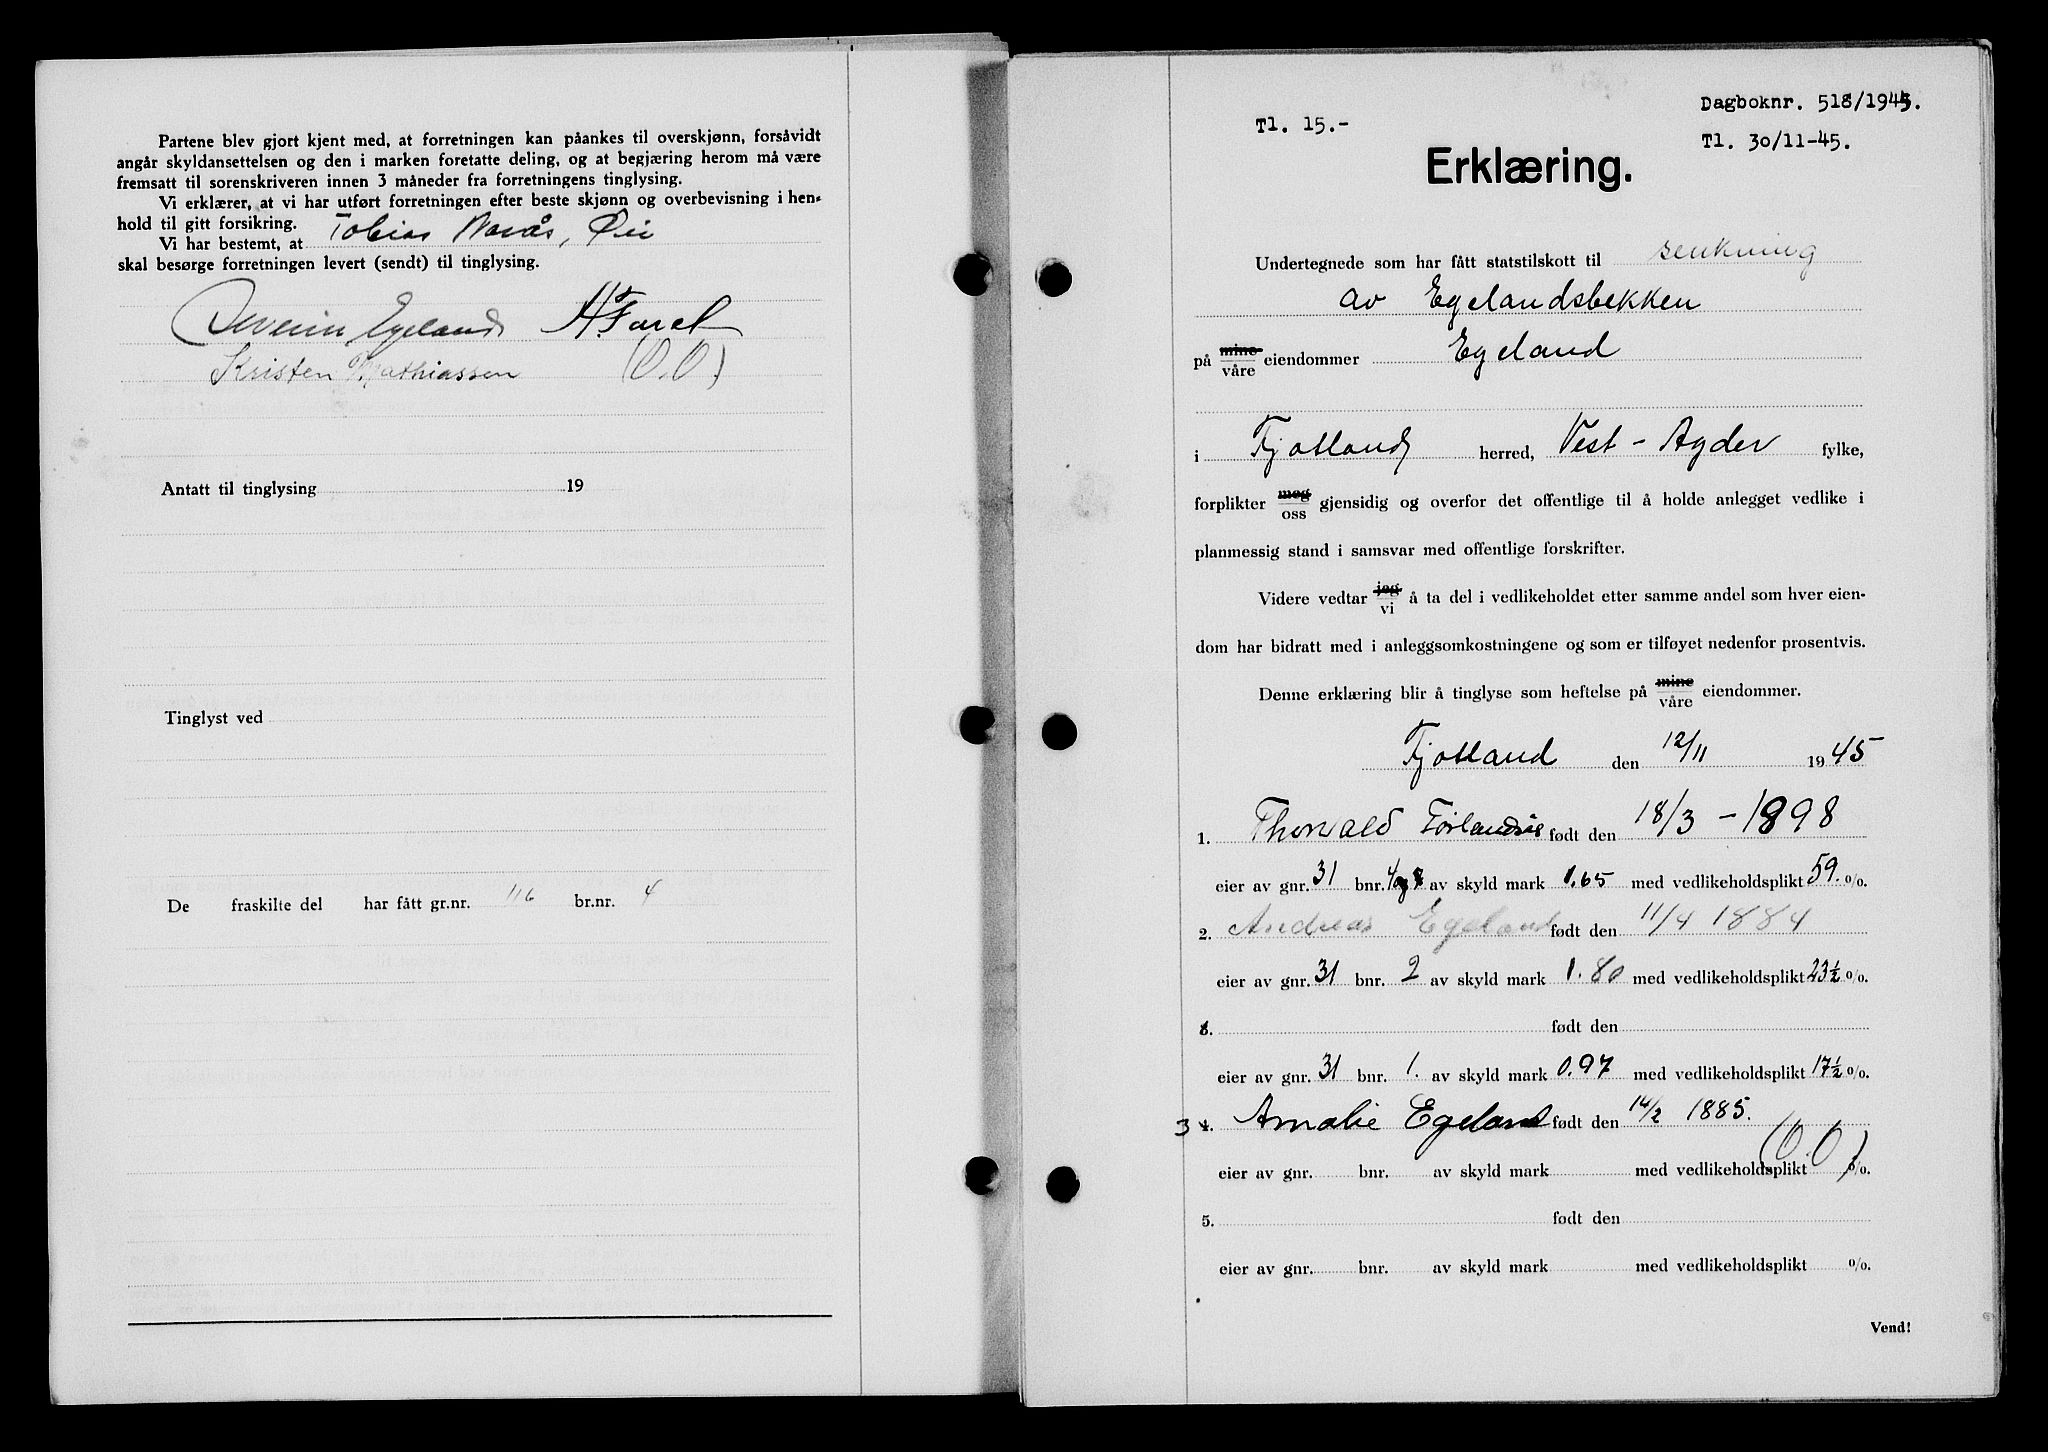 Partene blev gjort kjent med, at forretningen kan påankes til overskjønn, forsåvidt
angår skyldansettelsen og den i marken foretatte deling, og at begjæring herom må være
fremsatt til sorenskriveren innen 3 måneder fra forretningens tinglysing.
Vi erklærer, at vi har utført forretningen efter beste skjønn og overbevisning i hen-
hold til gitt forsikring.
Vi har bestemt, at Tobias
skal besørge forretningen levert (sendt) til tinglysing.
Severin Egeland
Kristen Mathiassen (O.O)
Antatt til tinglysing 19
Tinglyst ved
De fraskilte del har fått gr.nr. 116 br.nr. 4
Dagboknr. 518/1945.
Tl. 15.-
Tl. 30/11-45.
Erklæring.
Undertegnede som har fått statstilskott til senkning
av Egelandsbekken
på mine våre eiendommer Egeland
i Fjotland herred, Vest-Agder fylke,
forplikter meg oss gjensidig og overfor det offentlige til å holde anlegget vedlike i
planmessig stand i samsvar med offentlige forskrifter.
Videre vedtar jeg vi å ta del i vedlikeholdet etter samme andel som hver eien-
dom har bidratt med i anleggsomkostningene og som er tilføyet nedenfor prosentvis.
Denne erklæring blir å tinglyse som heftelse på mine våre eiendommer.
Fjotland den 12/11 1945
1. Thorvald født den 18/3 - 1898
eier av gnr. 31 bnr. 4 og av skyld mark 1.65 med vedlikeholdsplikt 59. %.
2. Andreas Egeland født den 11/4 1884
eier av gnr. 31 bnr. 2 av skyld mark 1.80 med vedlikeholdsplikt 23½ %.
født den
eier av gnr. 31 bnr. 1. av skyld mark 0.97 med vedlikeholdsplikt 17½ %.
3 4. Amalie Egeland født den 14/2 1885.
eier av gnr. bnr. av skyld mark med vedlikeholdsplikt (O.O) %.
5. født den
eier av gnr. bnr. av skyld mark med vedlikeholdsplikt %.
Vend!